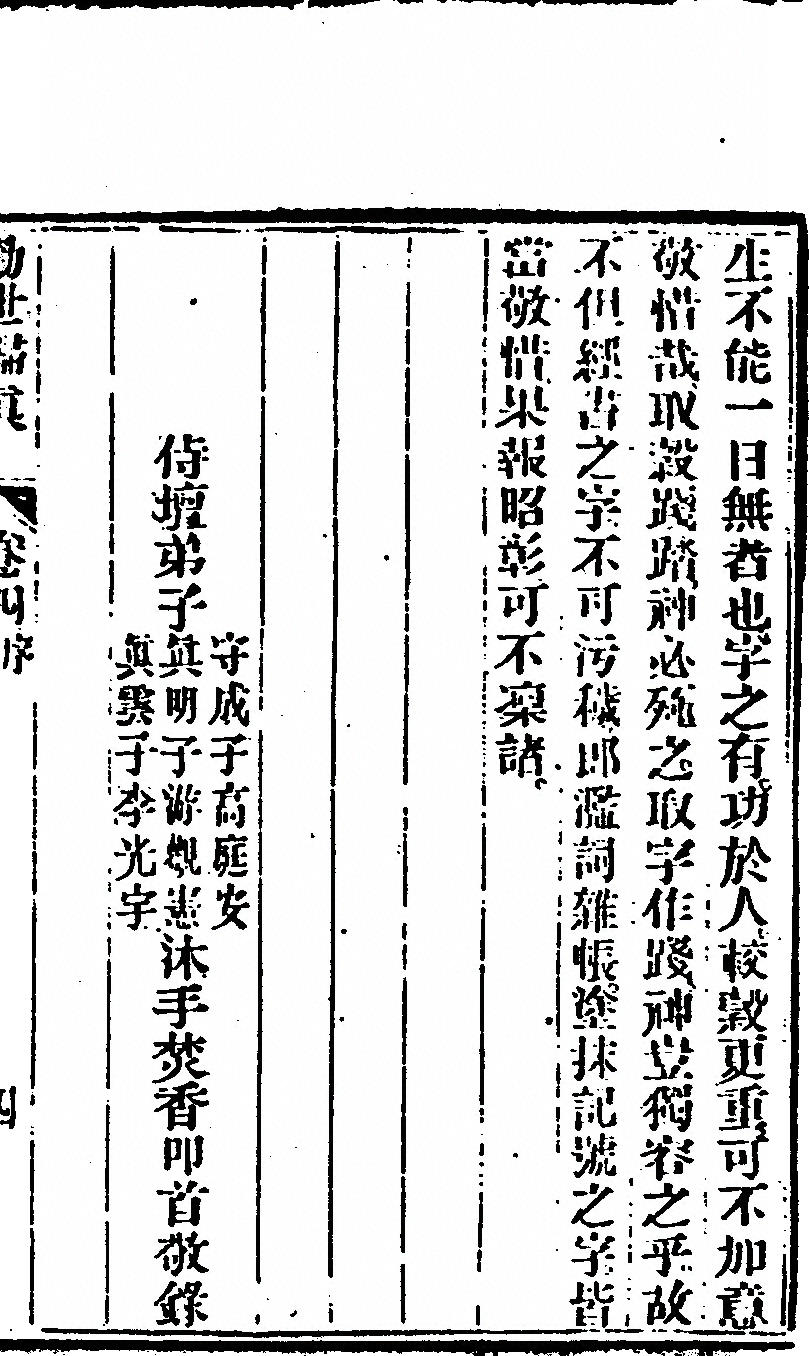 生不能一日無者也字之有功於人較穀更重可不加意
敬惜哉取穀踐踏神必殛之取字作踐神豈獨容之乎故
不但經書之字不可污穢即濫詞雜帳塗抹記號之字皆
當敬惜果報昭彰可不凜諸
侍壇弟子
守成子高庭安
眞明子游觀憲
眞雲子李光宇
沐手焚香叩首敬錄
卷四序
四